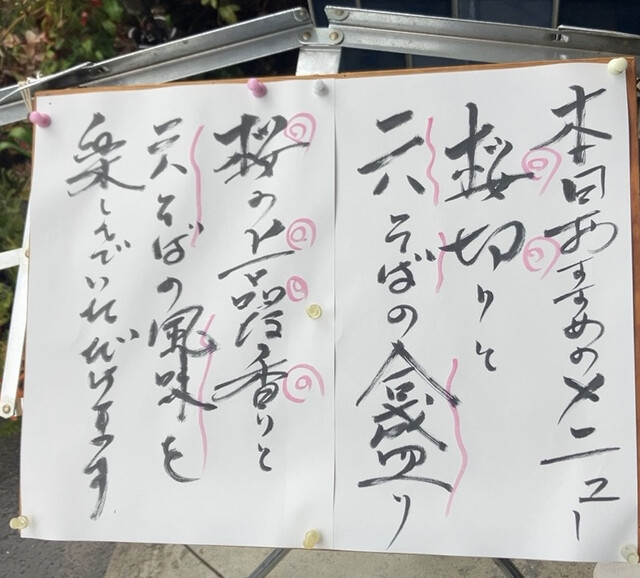 本日おすすめのメニュー
桜切りと
二八そばの合盛り
桜の上品な香りと
二八そばの風味を
楽しんでいただけます